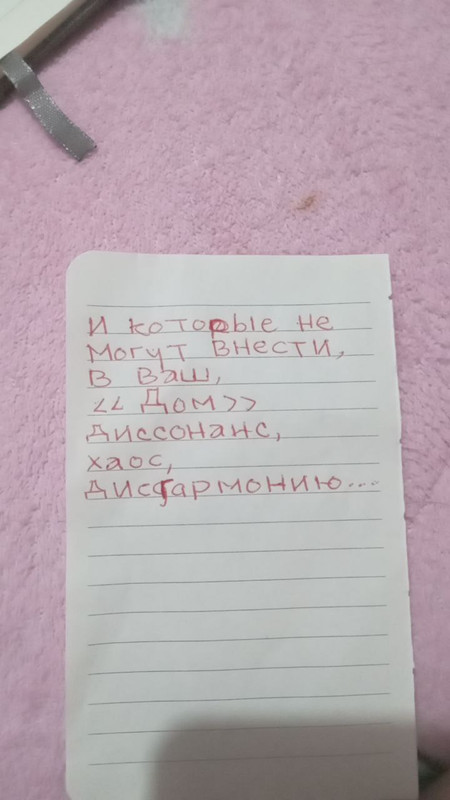 и которые не
могут внести,
в Ваш,
<< Дом>>
диссонанс,
хаос,
дисгармонию...